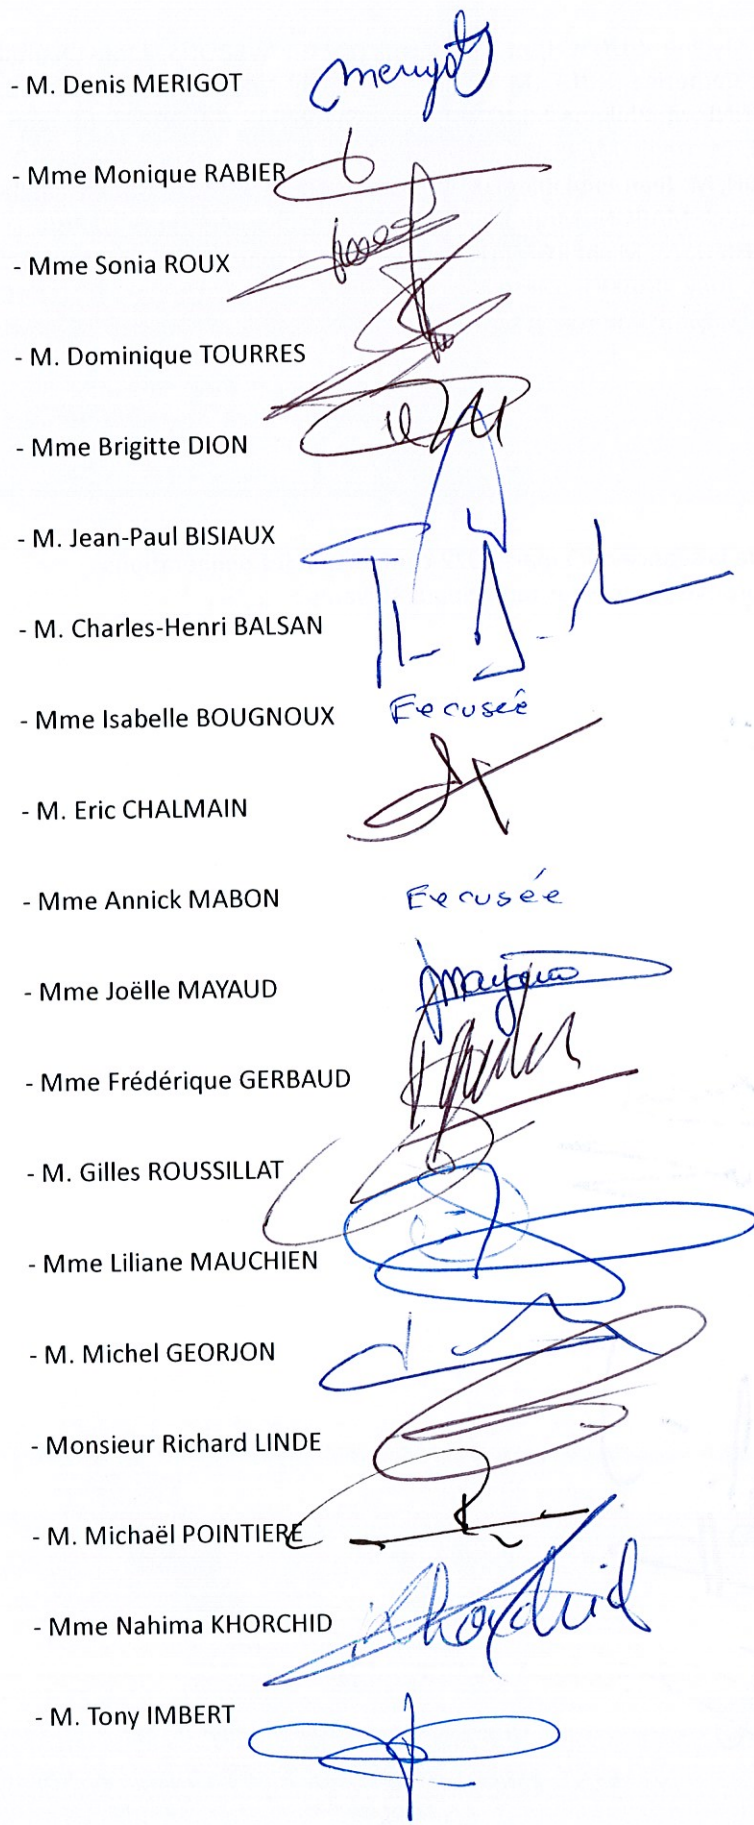 - M. Denis MERIGOT Merigot
- Mme Monique RABIER
- Mme Sonia ROUX
- M. Dominique TOURRES
- Mme Brigitte DION
- M. Jean-Paul BISIAUX
- M. Charles-Henri BALSAN
- Mme Isabelle BOUGNOUX Excusée
- M. Eric CHALMAIN
- Mme Annick MABON Excusée
- Mme Joëlle MAYAUD
- Mme Frédérique GERBAUD
- M. Gilles ROUSSILLAT
- Mme Liliane MAUCHIEN
- M. Michel GEORJON
- Monsieur Richard LINDE
- M. Michaël POINTIERE
- Mme Nahima KHORCHID Khorchid
- M. Tony IMBERT